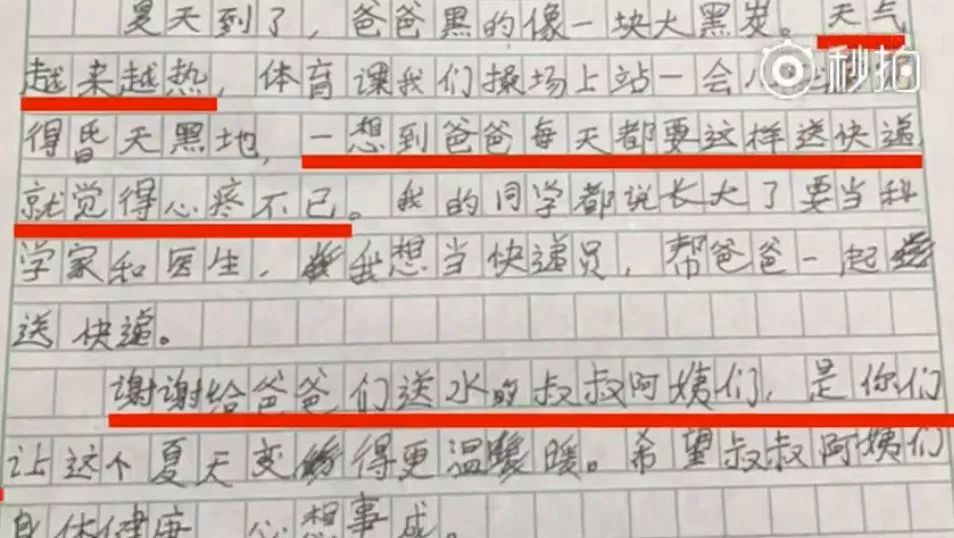 夏天到了，爸爸黑的像一块大黑炭。天气
秒拍
越来越热，体育课我们操场上站一会儿
得昏天黑地，一想到爸爸每天都要这样送快递
就觉得心疼不已。我的同学都说长大了要当科
学家和医生，我想当快递员，帮爸爸一起
送快递。
谢谢给爸爸们送水的叔叔阿姨们，是你们
让这个夏天变得更温暖。希望叔叔阿姨们
身体健康 心想事成。